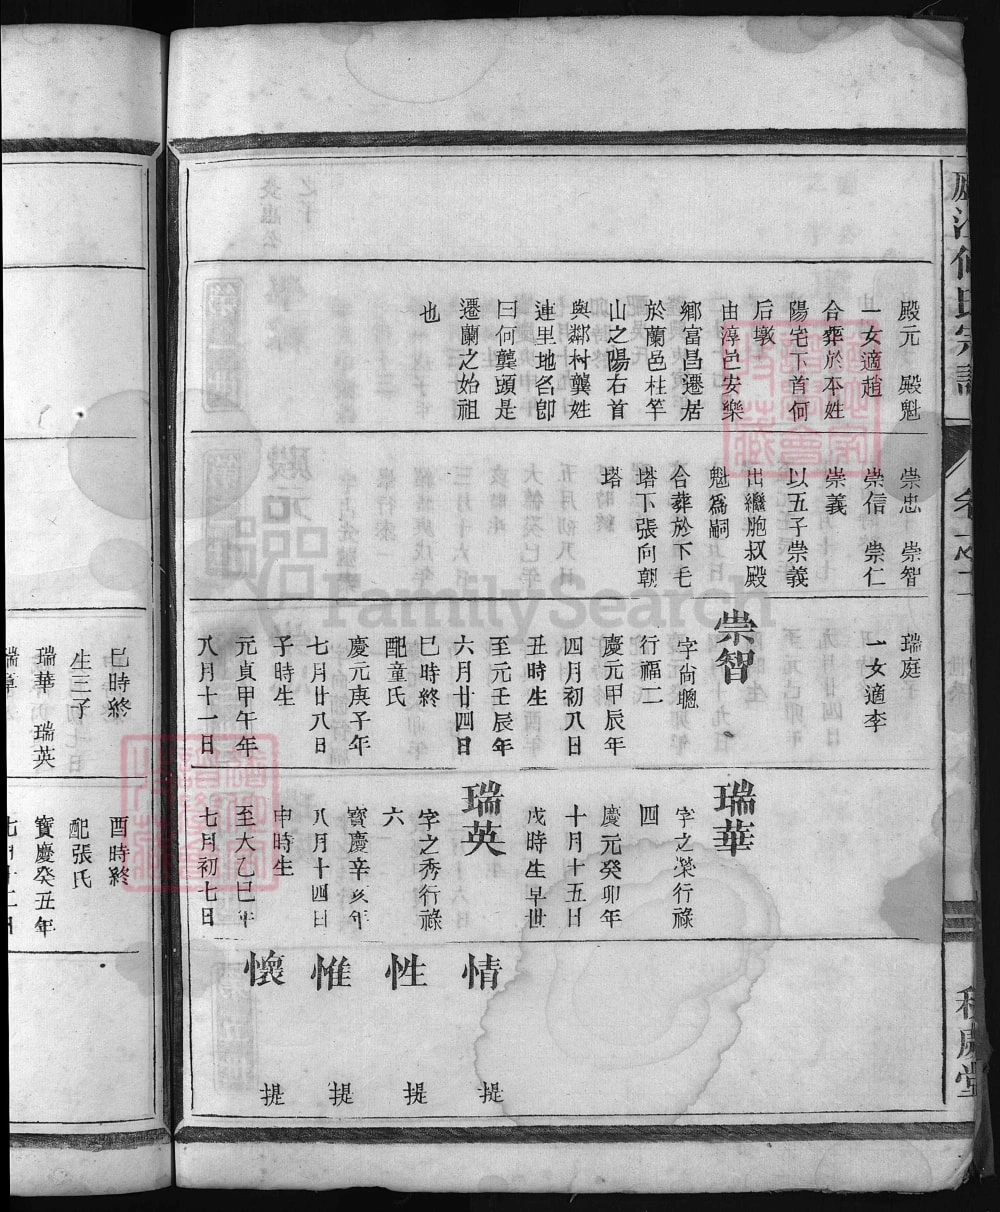 廬江何氏宗譜
卷之一
種德堂
殿元 殿魁
一女適趙
合葬於本姓
陽宅下首何
后墩
由淳邑安樂
鄉富昌遷居
於蘭邑杜竿
山之陽右首
與鄰村龔姓
連里地名卽
曰何龔頭是
遷蘭之始祖
也
崇忠 崇智
崇信 崇仁
崇義
以五子崇義
出繼胞叔殿
魁爲嗣
合葬於下毛
塔下張向朝
塔
瑞庭
一女適李
崇智
字尙聰
行福二
慶元甲辰年
四月初八日
丑時生
至元壬辰年
六月廿四日
巳時終
配童氏
慶元庚子年
七月廿八日
子時生
元貞甲午年
八月十一日
瑞華
字之榮行祿
四
慶元癸卯年
十月十五日
戌時生早世
瑞英
字之秀行祿
六
寳慶辛亥年
八月十四日
申時生
至大乙巳年
七月初七日
情 提
性 提
惟 提
懷 提
巳時終
生三子
瑞華 瑞英
瑞章
酉時終
配張氏
寳慶癸丑年
FamilySearch